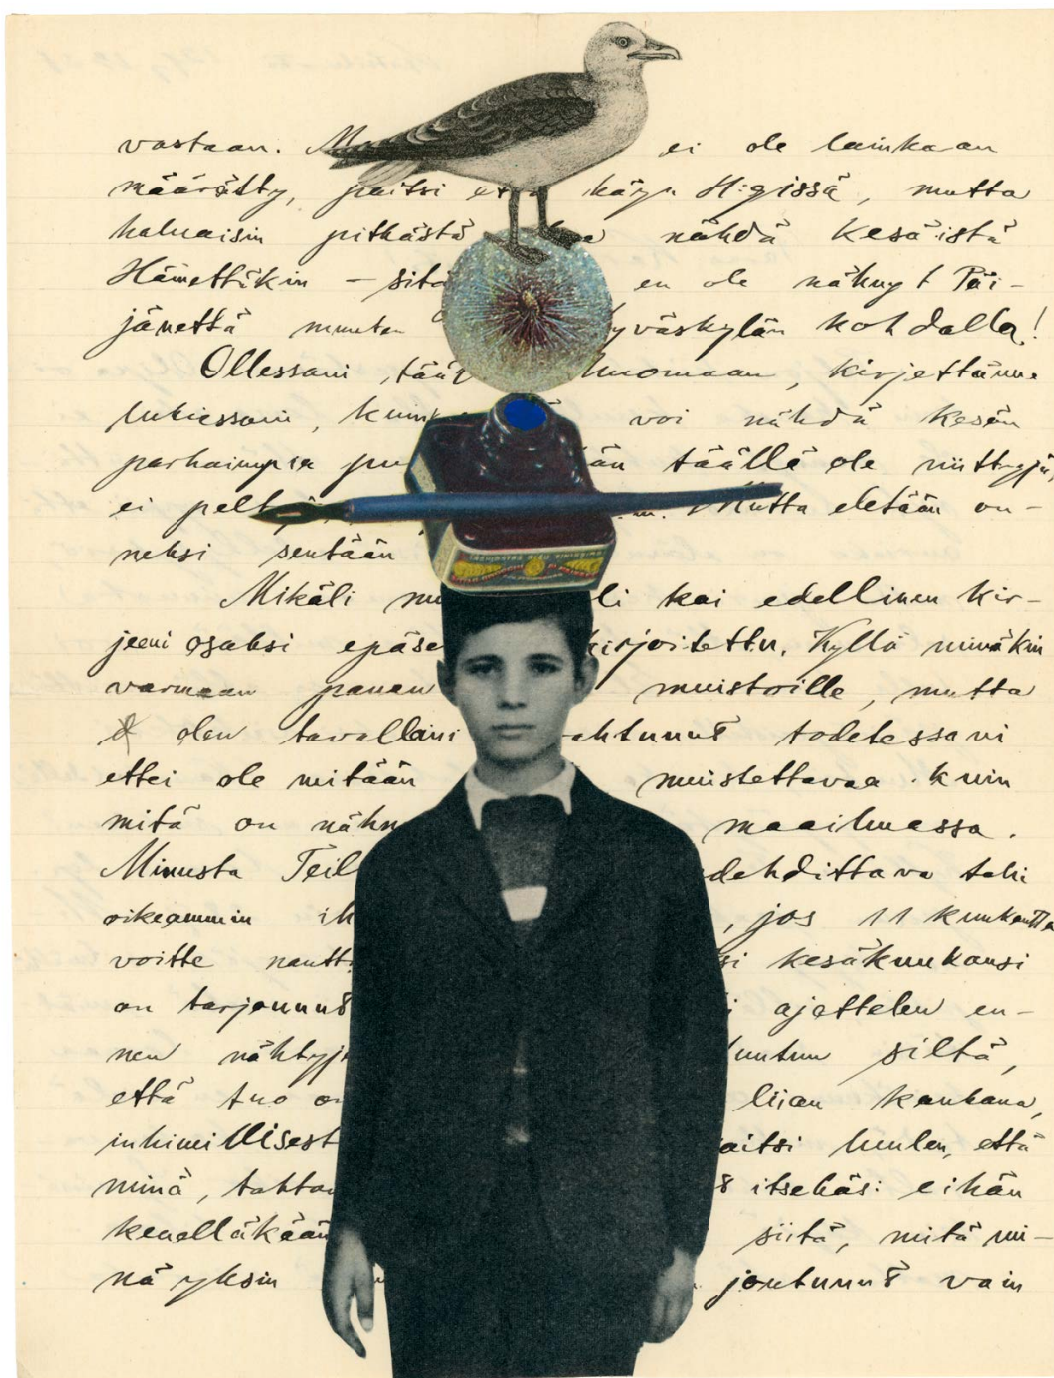 vastaan. ei ole lainkaan
määrätty, paitsi että käyn H:gissä, mutta
haluaisin pitkästä nähdä kesäistä
Hämettäkin – sitä en ole nähnyt Päi-
jännettä muuten yväskylän kohdalla!
Ollessani tääl kirjettänne
lukiessani, voi nähdä kesän
parhaimpia än täällä ole niittyjä,
ei pelt Mutta eletään on-
neksi sentään
Mikäli mu li kai edellinen kir-
jeeni osaksi epäse kirjoitettu. Kyllä minäkin
varmaan panen muistoille, mutta
olen tavallani ahtunut todetessani
ettei ole mitään muistettavaa kuin
mitä on nähn maailmassa.
Minusta Teil dehdittava tahi
oikeammin ih , jos 11 kuukautta
voitte nautti si kesäkuukausi
on tarjonnut i ajattelen en-
nen nähtyjä tuntuu siltä,
että tuo on liian kaukana,
inhimillisest aitsi luulen, että
minä, tahtoo itsekäs: eihän
kenelläkään siitä, mitä mi-
nä yksin joutunut vain